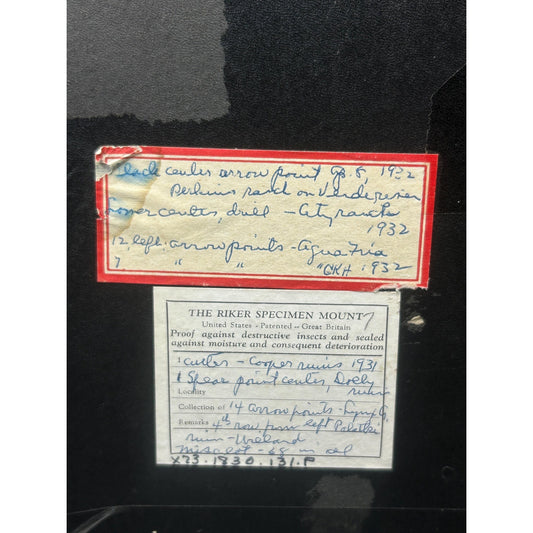 Black center arrow point Gp. 8, 1932
Perkins ranch on Verde river
Lower center, drill -
1932
12, left, arrow points - Agua Fria
7 " " " CKH 1932
THE RIKER SPECIMEN MOUNT 7
United States - Patented - Great Britain
Proof against destructive insects and sealed
against moisture and consequent deterioration
1 cutter - Cooper ruins 1931
1 Spear point center,
Locality ruin
Collection of 14 arrow points -
Remarks 4th row, from left Polatki
ruin -
Misc lot - 68 in all
X73.1830.131.P